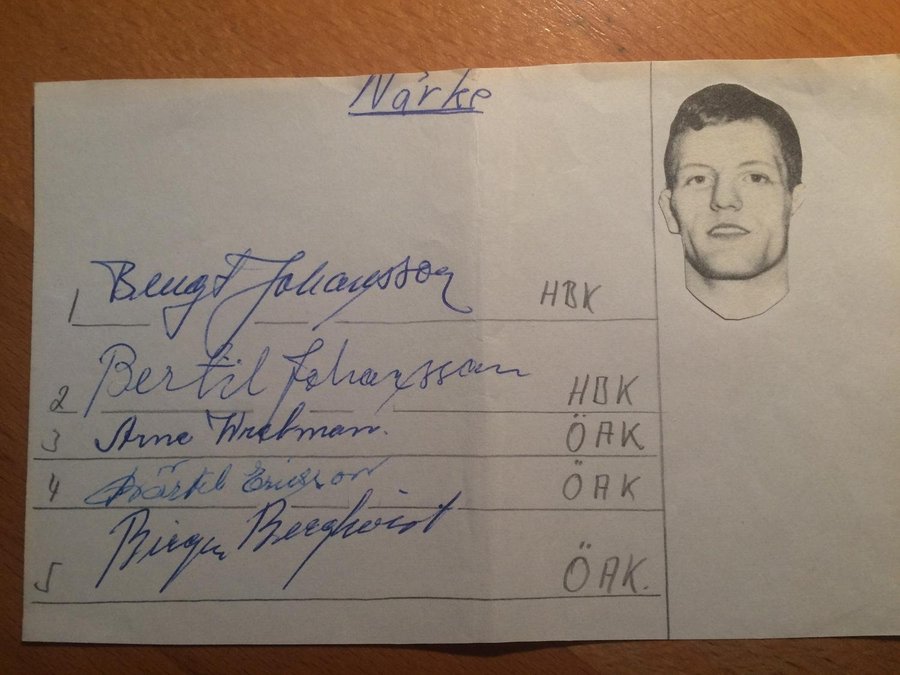 Närke
1 Bengt Johansson HBK
2 Bertil Johansson HBK
3 Arne ÖAK
4 Ericsson ÖAK
5 Birger Bergkvist ÖAK.